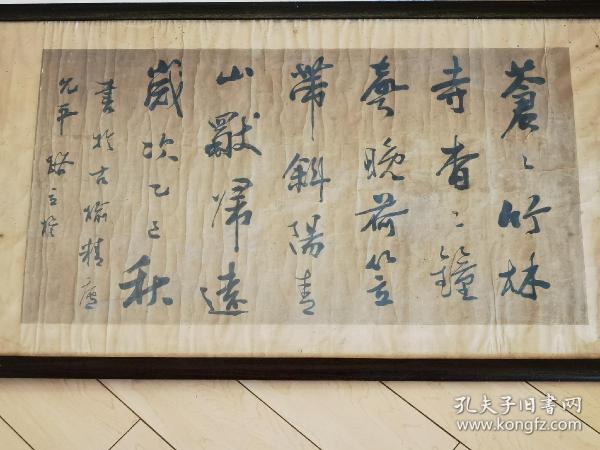 蒼〻竹林
寺杳〻鐘
聲晚荷笠
帶斜陽青
山獻歸遠
歲次乙巳秋
書於古榆精廬
允平
孔夫子旧書网
www.kongfz.com